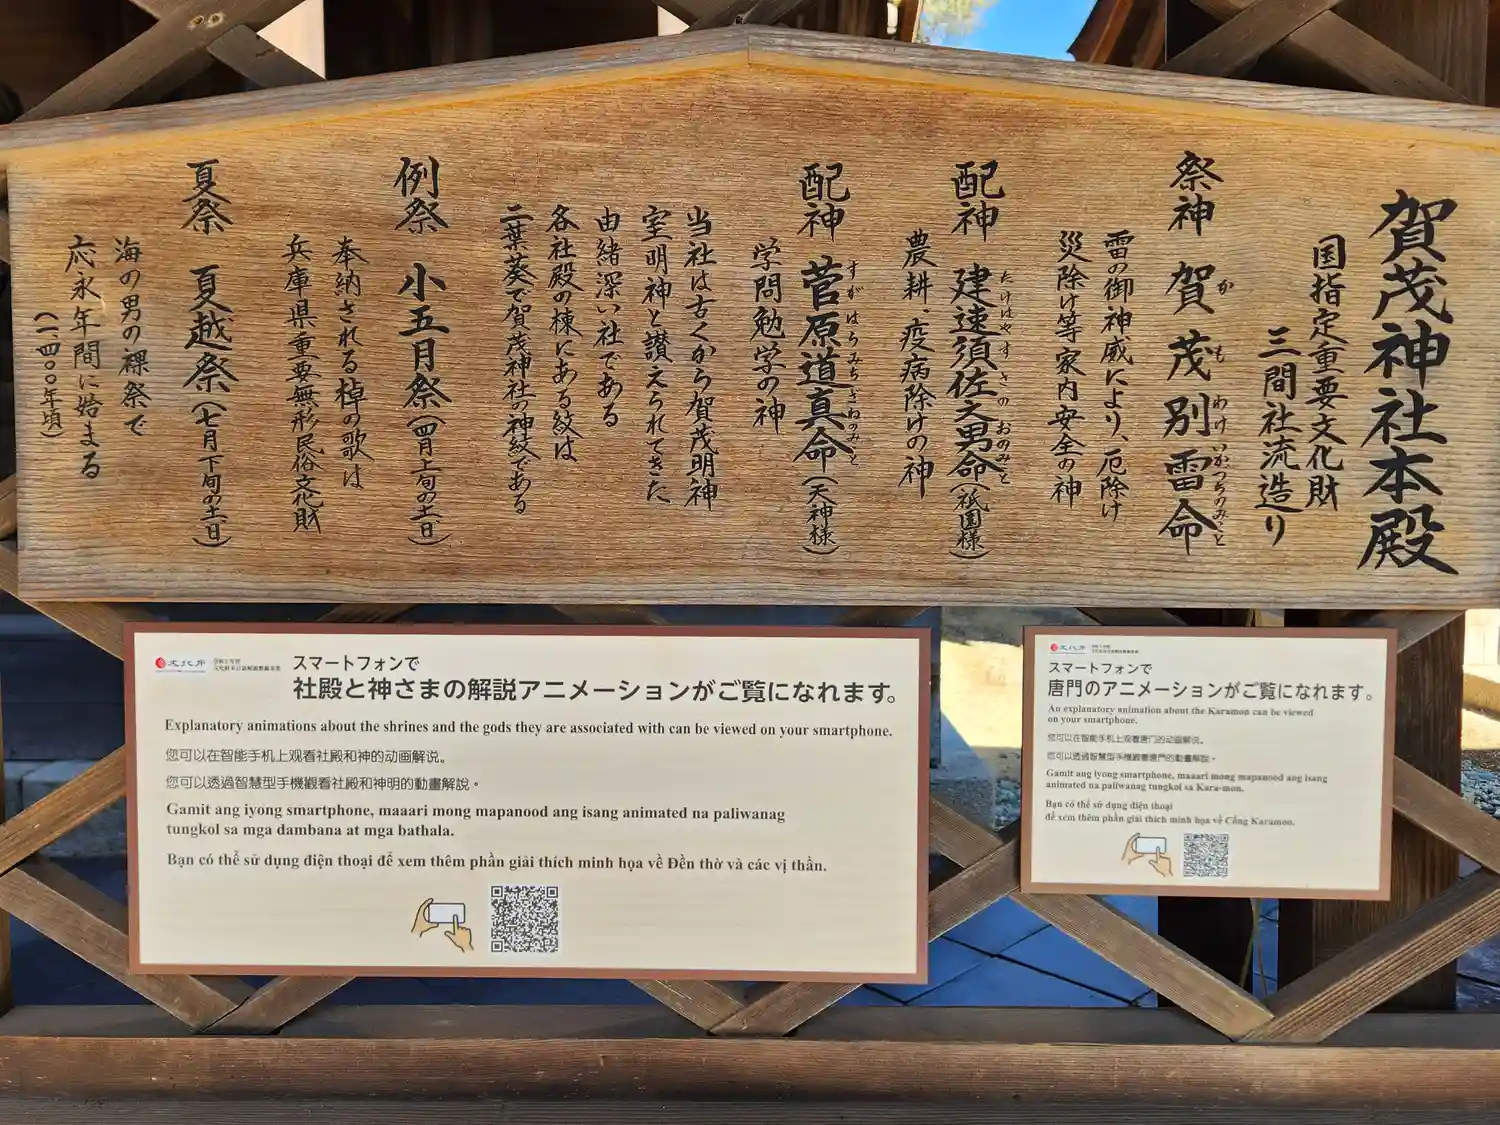 賀茂神社本殿
国指定重要文化財
三間社流造り
祭神 賀茂別雷命
か も わけ いかつちのみこと
雷の御神威により、厄除け
災除け等家内安全の神
配神 建速須佐之男命(祇園様)
たけはやすさの おのみこと
農耕、疫病除けの神
配神 菅原道真命(天神様)
すがはらみちざねのみこと
学問勉学の神
当社は古くから賀茂明神
室明神と讃えられてきた
由緒深い社である
各社殿の棟にある紋は
二葉葵で賀茂神社の神紋である
例祭 小五月祭(四月上旬の土、日)
奉納される棹の歌は
兵庫県重要無形民俗文化財
夏祭 夏越祭(七月下旬の土、日)
海の男の裸祭で
応永年間に始まる
(一四〇〇年頃)
文化庁
スマートフォンで
社殿と神さまの解説アニメーションがご覧になれます。
Explanatory animations about the shrines and the gods they are associated with can be viewed on your smartphone.
您可以在智能手机上观看社殿和神的动画解说。
您可以透過智慧型手機觀看社殿和神明的動畫解說。
Gamit ang iyong smartphone, maaari mong mapanood ang isang animated na paliwanag
tungkol sa mga dambana at mga bathala.
Bạn có thể sử dụng điện thoại để xem thêm phần giải thích minh họa về Đền thờ và các vị thần.
文化庁
スマートフォンで
唐門のアニメーションがご覧になれます。
An explanatory animation about the Karamon can be viewed
on your smartphone.
您可以在智能手机上观看唐门的动画解说。
您可以透過智慧型手機觀看唐門的動畫解說。
Gamit ang iyong smartphone, maaari mong mapanood ang isang
animated na paliwanag tungkol sa Kara-mon.
Bạn có thể sử dụng điện thoại
để xem thêm phần giải thích minh họa về Cổng Karamon.